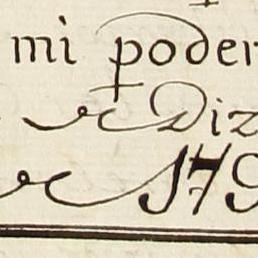 mi poder
Diz
179